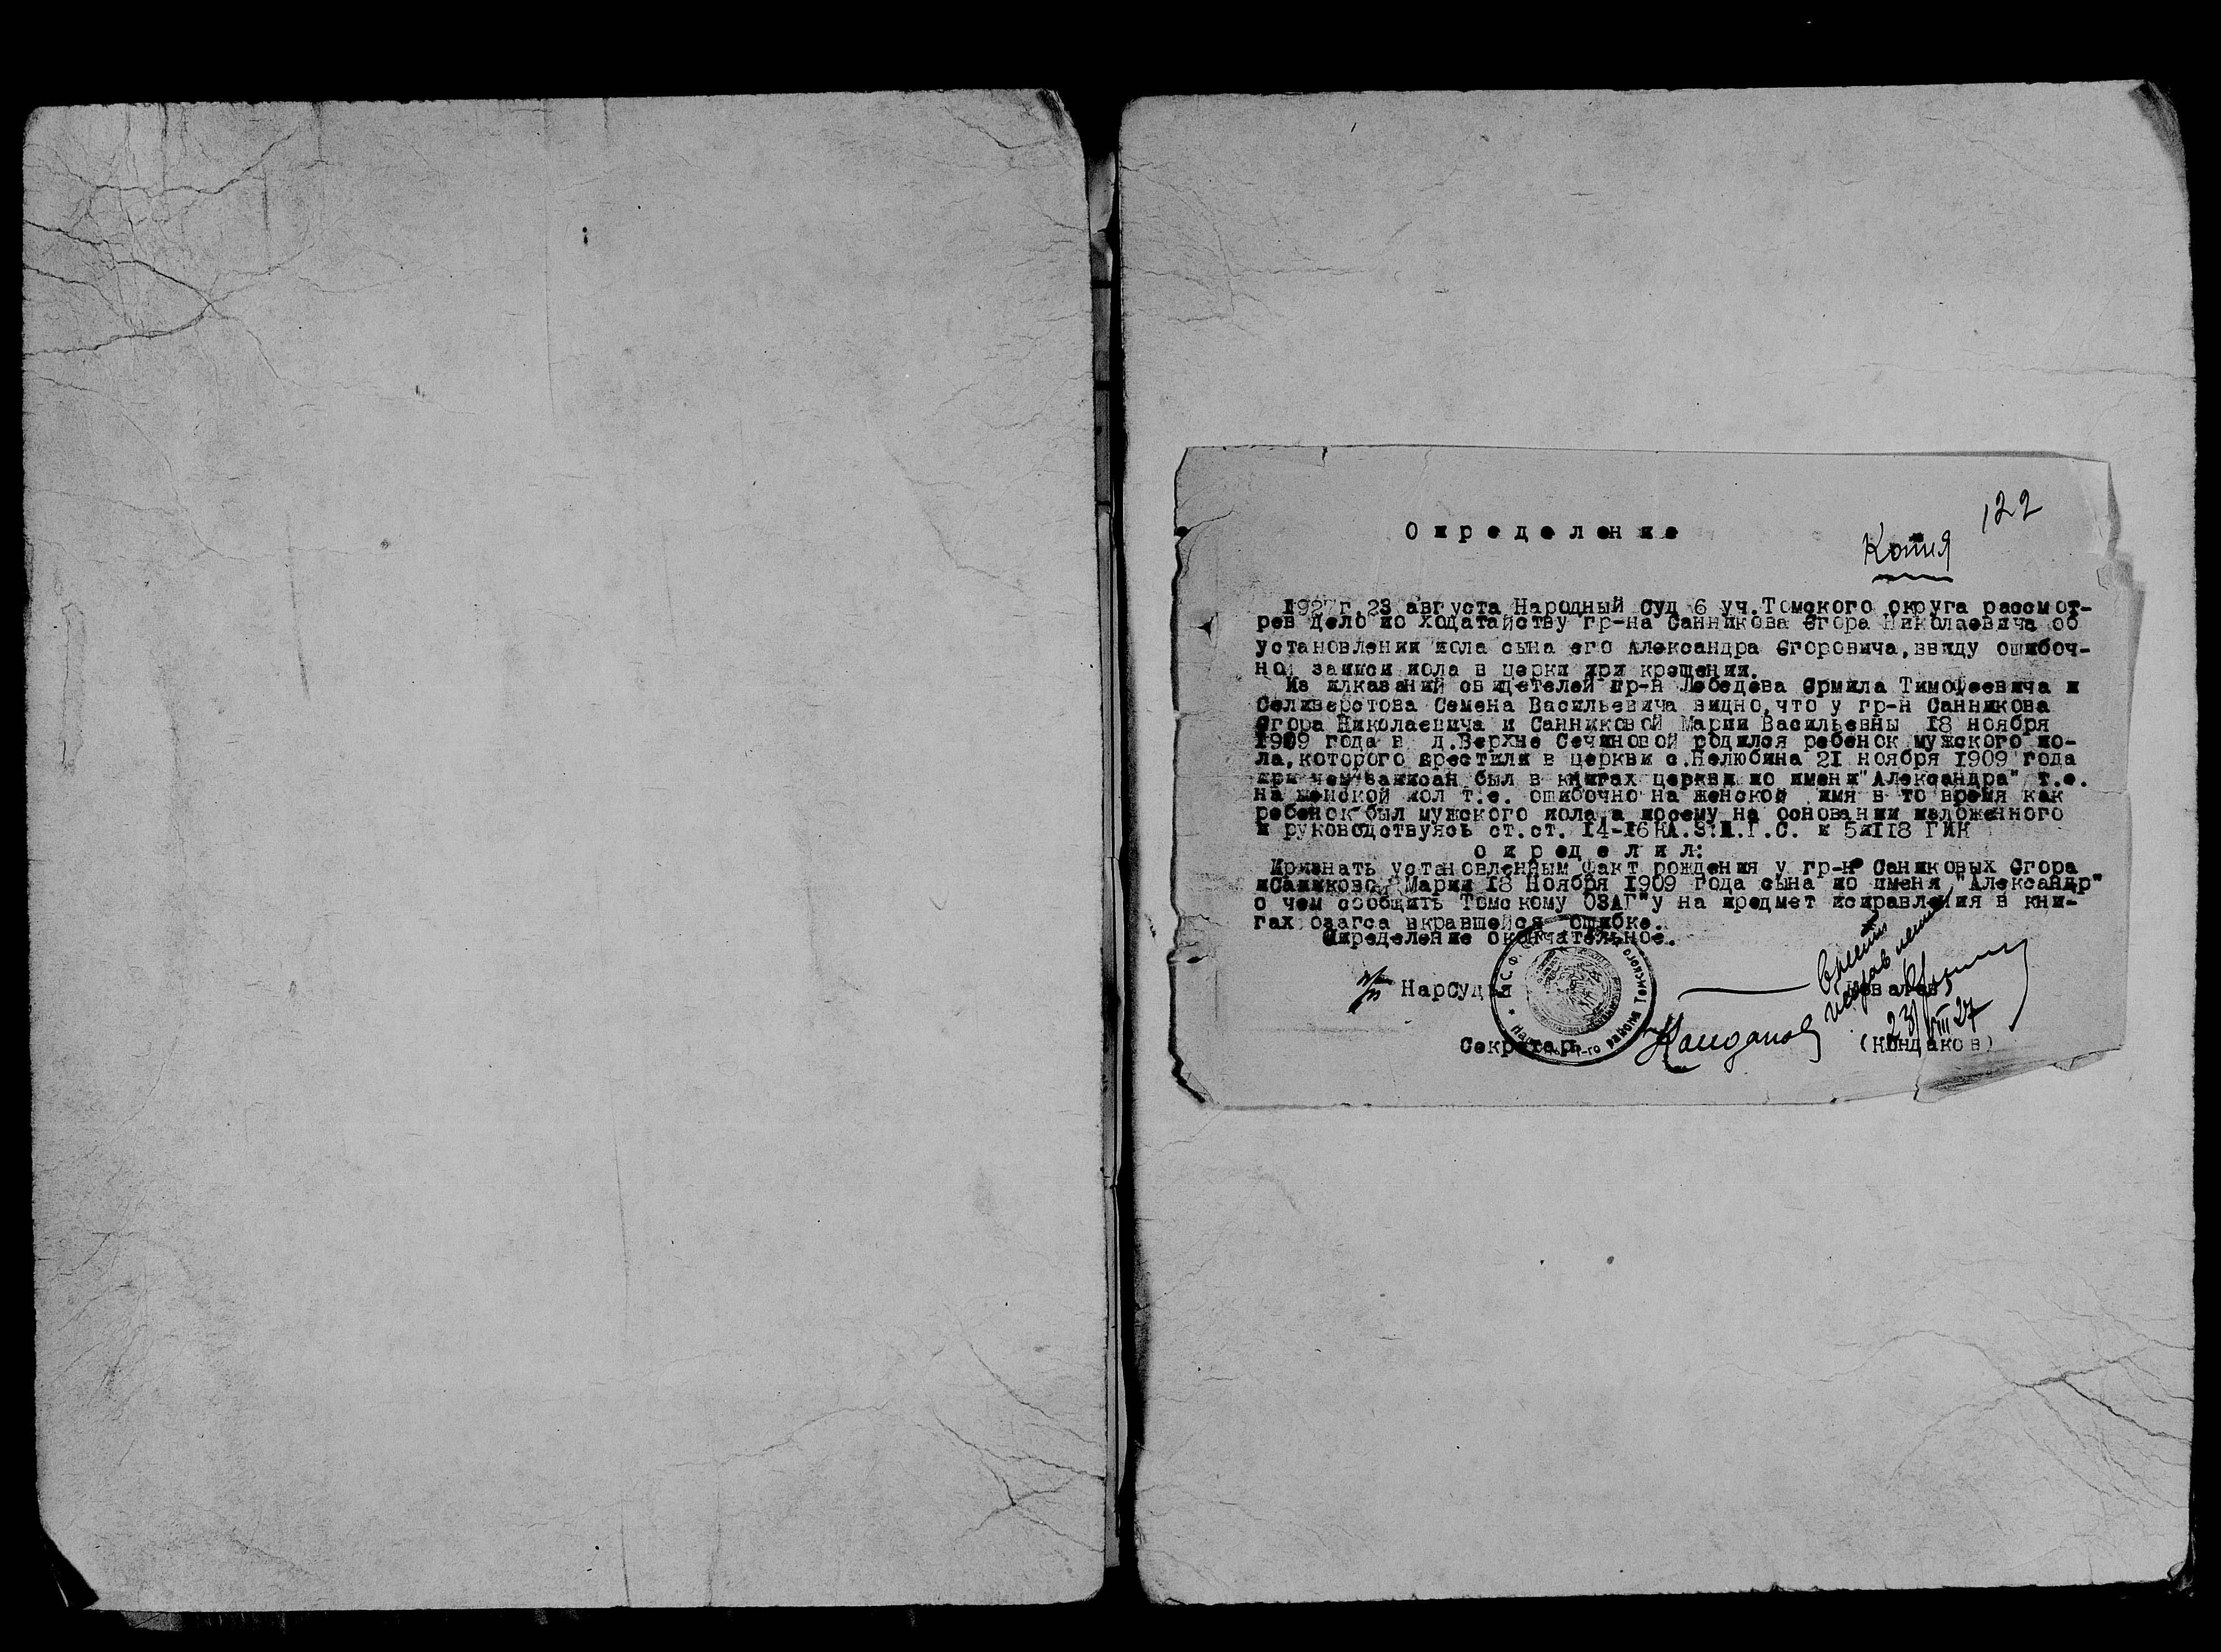 122
Определение
Копия
1927г.23 августа Народный Суд 6 уч.Томского округа рассмот-
рев дело по ходатайству гр-на Санникова Егора Николаевича об
установлении пола сына его Александра Егоровича,ввиду ошибоч-
ной записи пола в церки при крещении.
Из плказаний свидетелей гр-н Лебедева Ермила Тимофеевича и
Селиверстова Семена Васильевича видно,что у гр-н Санникова
Егора Николаевича и Санниковой Марии Васильевны 18 ноября
1909 года в д.Верхне Сечиновой родился ребенок мужского по-
ла,которого крестили в церкви с.Нелюбина 21 ноября 1909 года
при чем записан был в книгах церкви по имени"Александра" т.е.
на женской пол т.е. ошибочно на женской имя в то время как
ребенок был мужского пола,а посему на основании изложенного
и руководствуясь ст.ст. 14-16 КА.З.П.Г.С. и 5и118 ГПК
определил:
Признать установленным факт рождения у гр-н Саниковых Егора
иСаниковой Марии 18 Ноября 1909 года сына по имени "Александр"
о чем сообщить Томскому ОЗАГ"у на предмет исправления в кни-
гах озагса вкравшейся ошибке.
Определение окончательное.
п/п Нарсудья
23/VIII 27
Секретарь (Кондаков)